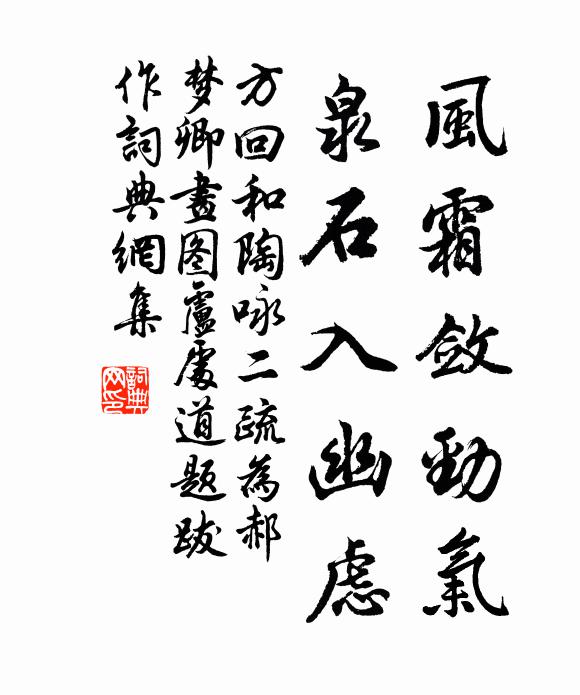 風霜斂勁氣
泉石入幽慮
方回和陶咏二疏為郝
梦卿畫图盧處道题跋
作詞典網集
詞典網印